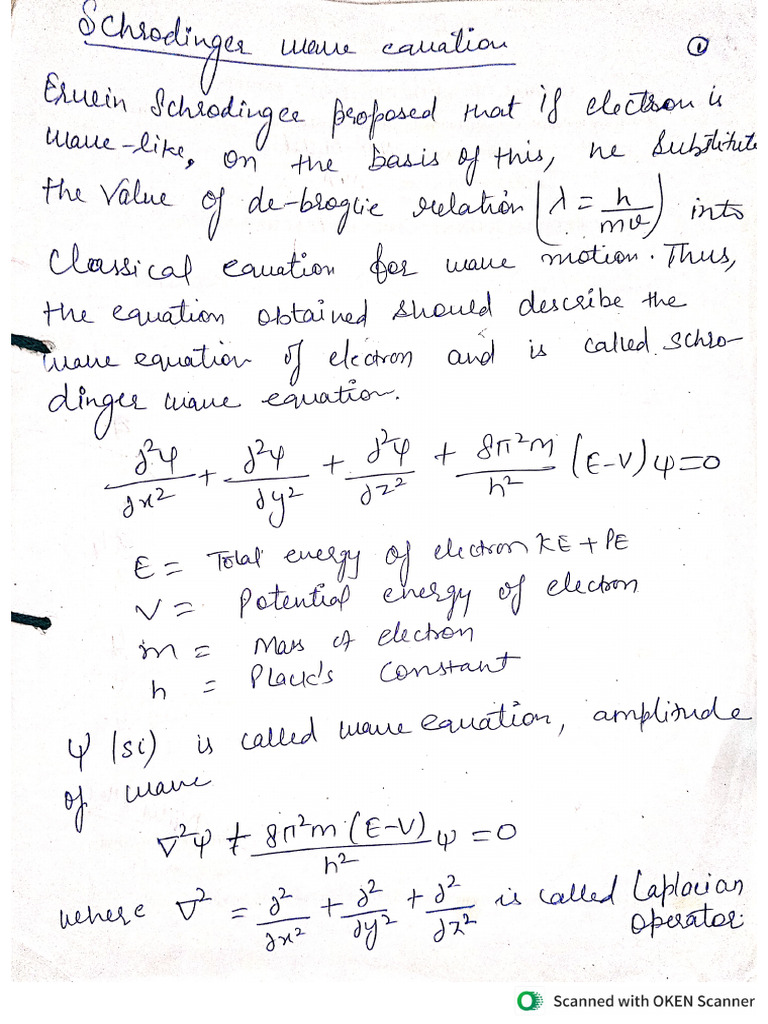 Schrodinger wave equation
①
Erwein Schrodinger proposed that if electron is
wave-like, on the basis of this, he substitute
the value of de-broglie relation (λ = h/mv) into
Classical equation for wave motion. Thus,
the equation obtained should describe the
wave equation of electron and is called schro-
dinger wave equation.
∂²ψ/∂x² + ∂²ψ/∂y² + ∂²ψ/∂z² + 8π²m/h² (E-V)ψ=0
E = Total energy of electron KE + PE
V = Potential energy of electron
m = Mass of electron
h = Plack's constant
ψ (si) is called wave equation, amplitude
of wave
∇²ψ + 8π²m (E-V)/h² ψ = 0
where ∇² = ∂²/∂x² + ∂²/∂y² + ∂²/∂z² is called Laplacian
operator.
Scanned with OKEN Scanner